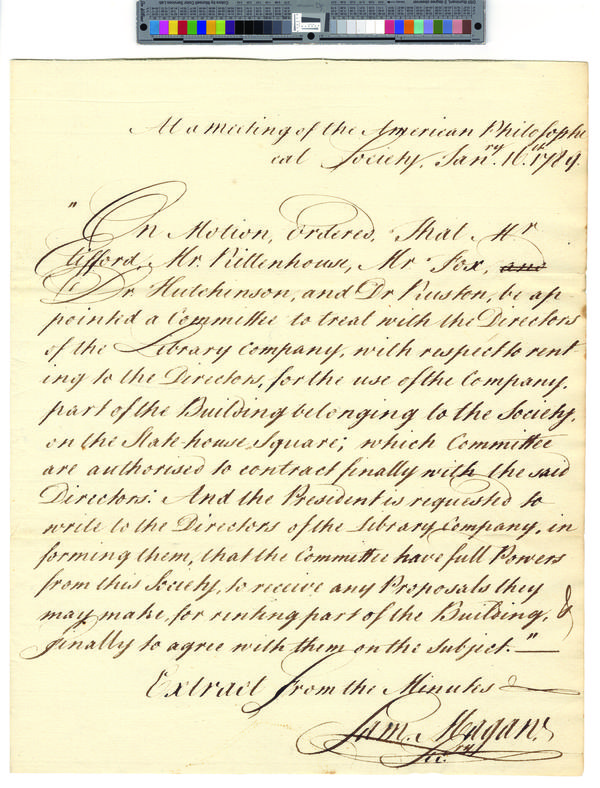 At a meeting of the American Philosophi
cal Society, Janry. 16th. 1789.
"On Motion, Ordered, That Mr
Clifford, Mr. Rittenhouse, Mr Fox, and
Dr Hutchinson, and Dr Ruston, be ap
pointed a Committee to treat with the Directors
of the Library Company, with respect to rent
ing to the Directors, for the use of the Company,
part of the Building belonging to the Society,
on the State house Square; which Committee
are authorised to contract finally with the said
Directors: And the President is requested to
write to the Directors of the Library Company, in
forming them, that the Committee have full Powers
from this Society, to receive any Proposals they
may make, for renting part of the Building, &
finally to agree with them on the subject."
Extract from the Minutes
Sam. Magaw.
Secry